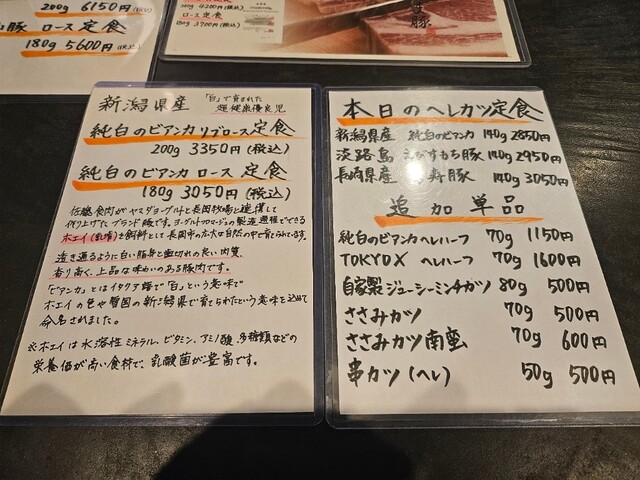 200g 6150円(税込)
豚 ロース定食
180g 5600円(税込)
200g 4200円(税込)
ロース定食
180g 3900円(税込)
新潟県産 「白」で育まれた
超健康優良児
純白のビアンカ リブロース定食
200g 3350円(税込)
純白のビアンカ ロース定食
180g 3050円(税込)
佐藤食肉がヤスダヨーグルトと長岡牧場と連携して
作り上げたブランド豚です。ヨーグルトフロマージュの製造過程でできる
ホエイ(乳清)を飼料として長岡市の広大な自然の中で育てられています。
透き通るように白い脂身と歯切れの良い肉質、
香り高く、上品な味わいのある豚肉です。
「ビアンカ」とはイタリア語で「白」という意味で
ホエイの色や雪国の新潟県で育てられたという意味を込めて
命名されました。
※ホエイは水溶性ミネラル、ビタミン、アミノ酸、多糖類などの
栄養価が高い食材で、乳酸菌が豊富です。
本日のヘレカツ定食
新潟県産 純白のビアンカ 140g 2850円
淡路島 えびすもち豚 140g 2950円
長崎県産 寿豚 140g 3050円
追加単品
純白のビアンカヘレハーフ 70g 1150円
TOKYOX ヘレハーフ 70g 1600円
自家製ジューシーミンチカツ 80g 500円
ささみカツ 70g 500円
ささみカツ南蛮 70g 600円
串カツ(ヘレ) 50g 500円